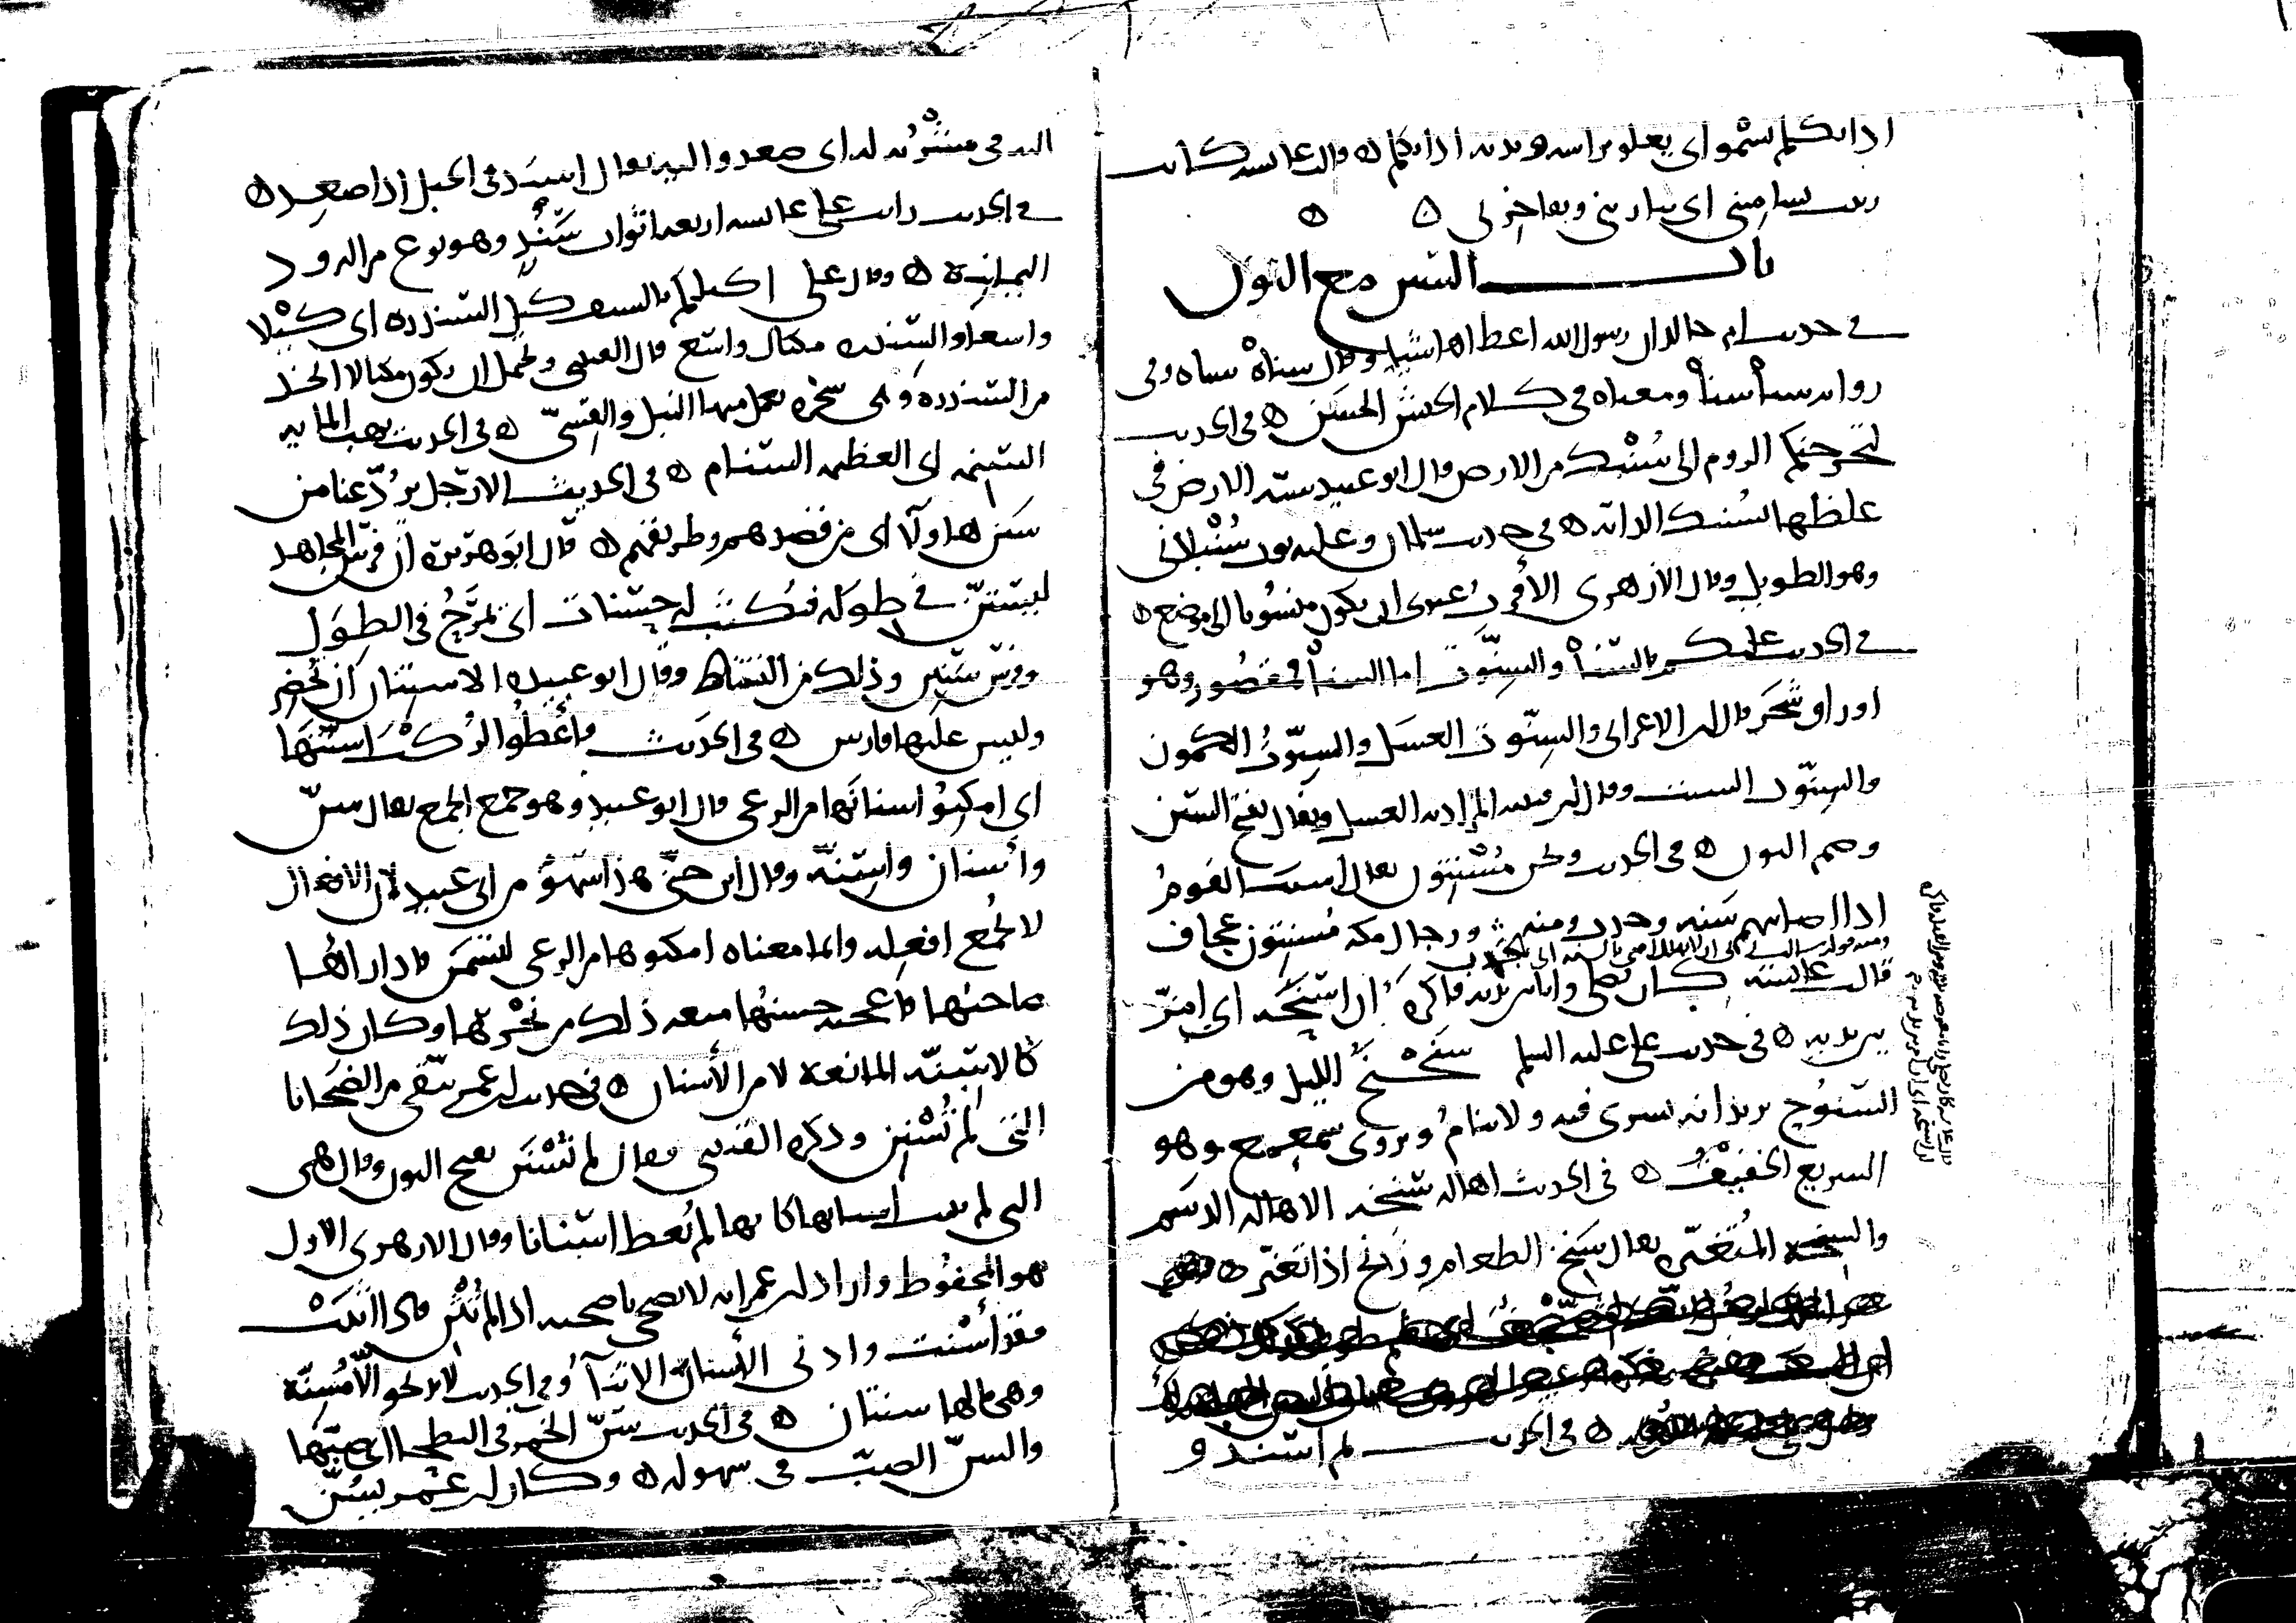 اذا تكلم يسمو اى يعلو براسه ويديه اذا تكلم ۞ قالت عائشة كانت
زينب تسامينى اى تبارينى وتفاخرنى ۞ ۞
باب السين مع النون
فى حديث ام خالد ان رسول الله اعطاها شيا وقال سناه سناه وفى
رواية سنا سنا ومعناه فى كلام الحبش الحسن ۞ فى الحديث
لتخرجنكم الروم الى سنبك من الارض قال ابو عبيد شبه الارض فى
غلظها بسنبك الدابة ۞ فى حديث سلمان وعليه ثوب سنبلانى
وهو الطويل وقال الازهرى الاقرب عندى ان يكون منسوبا الى موضع ۞
فى الحديث عليكم بالسنا والسنوت اما السنا فمقصور وهو
اوراق شجر قال ابن الاعرابى والسنوت العسل والسنوت الكمون
والسنوت الشبت وقال ابن قتيبة المراد به العسل ويقال بفتح السين
وضم النون ۞ فى الحديث ونحن مسنتون يقال اسنت القوم
اذا اصابهم سنة وجدب ومنه ورجال مكة مسنتون عجاف
قالت عائشة كان يصلى وانا بين يديه فاكره ان اسنحه اى امر
بين يديه ۞ فى حديث على عليه السلم سنحنح الليل وهو من
السنوح يريد انه يسرى فيه ولا ينام ويروى سمعمع وهو
السريع الخفيف ۞ فى الحديث اهالة سنخة الاهالة الدسم
والسنخة المتغير يقال سنخ الطعام وزنخ اذا تغير ۞
۞ فى الحديث ثم اسندو
اليه فى مشربة له اى صعدوا اليه يقال اسند فى الجبل اذا صعد ۞
فى الحديث رايت على عائشة اربعة اثواب سند وهو نوع من البرود
اليمانية ۞ وقال على اكيلكم بالسيف كيل السندره اى كيلا
واسعا والسندره مكيال واسع قال القتيبى ويحتمل ان يكون مكيالا اتخذ
من السندره وهى شجره يعمل منها النبل والقسى ۞ فى الحديث يهب المائة
السنمة اى العظيمة السنام ۞ فى الحديث الا رجل يرد عنا من
سنن هاولا اى من قصدهم وطريقهم ۞ قال ابو هريرة ان فرس المجاهد
ليستن فى طوله فتكتب له حسنات اى تمرح فى الطول
وفرس سنين وذلك من النشاط وقال ابو عبيده الاستنان ان تحضر
وليس عليها فارس ۞ فى الحديث فاعطوا الركب اسنتها
اى امكنوا اسنانها من الرعى قال ابو عبيد وهو جمع الجمع يقال سن
واسنان واسنة وقال ابن جنى هذا سهو من ابى عبيد لان الافعال
لا تجمع افعلة وانما معناه امكنوها من الرعى لتسمن فاذا راها
صاحبها فاعجبه حسنها منعه ذلك من نحرها وكان ذلك
كالاسنة المانعة لا من الاسنان ۞ فى حديث ابن عمر يتقى من الضحايا
التى لم تسنن وذكره القتيبى فقال لم تسنن بفتح النون وقال هى
التى لم تنبت اسنانها كانها لم تعط اسنانا وقال الازهرى الاول
هو المحفوظ واراد ابن عمر انه لا يضحى باضحية اذا لم تثن فاذا اثنت
فقد اسنت وادنى الاسنان الاثناء وفى الحديث لا
وهى مالها سنتان ۞ فى الحديث سن الخمر فى البطحا اى صبها
والسن الصب فى سهولة ۞ وكان ابن عمر يسن